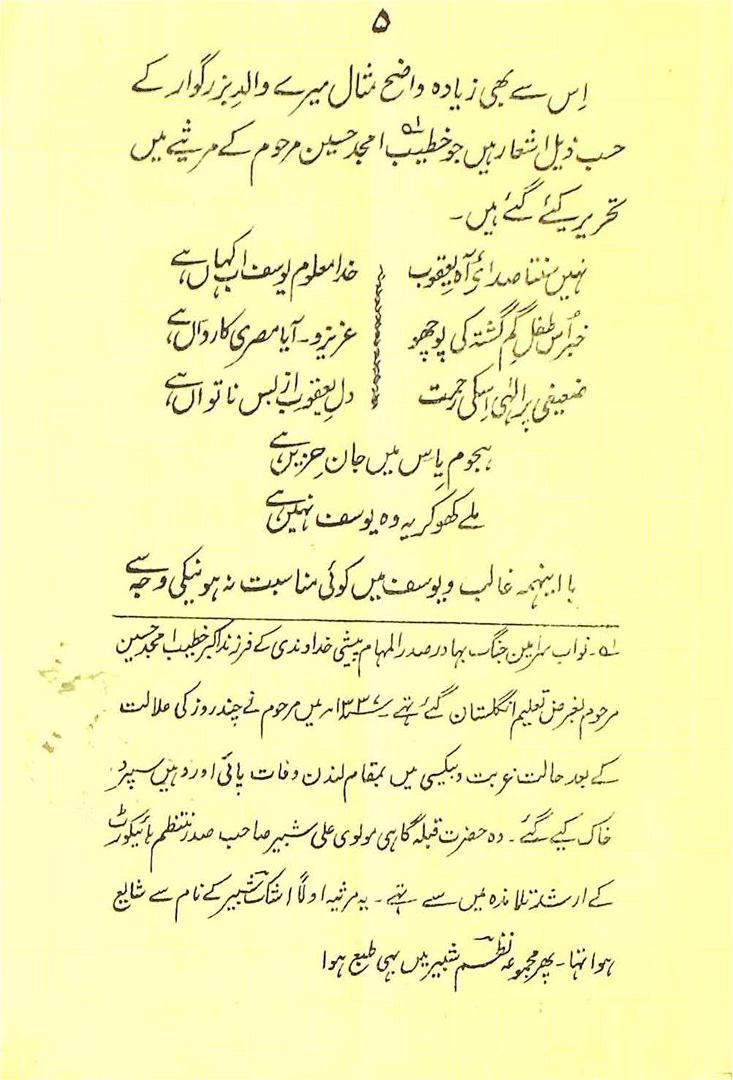 ۵
اِس سے بھی زیادہ واضح مثال میرے والدِ بزرگوار کے
حسب ذیل اشعار ہیں جو خطیب لہ امجد حسین مرحوم کے مرثیے میں
تحریر کیئے گئے ہیں۔
نہیں سنتا صدائے آہِ یعقوب خدا معلوم یوسف اب کہاں ہے
خبر اُس طفلِ گم گشتہ کی پوچھو عزیزو۔ آیا مصری کارواں ہے
ضعیفی پر الٰہی اسکی رحمت دلِ یعقوب از بس ناتواں ہے
ہجومِ یاس میں جانِ حزیں ہے
ملے کھو کر یہ وہ یوسف نہیں ہے
با اینہمہ غالب و یوسف میں کوئی مناسبت نہ ہونیکی وجہ سے
لہ۔ نواب سر امین جنگ بہادر صدر المہام پیشی خداوندی کے فرزند اکبر خطیب امجد حسین
مرحوم بغرض تعلیم انگلستان گئے تہے۔ ۱۳۳۷ھ میں مرحوم نے چند روز کی علالت
کے بعد حالت غربت و بیکسی میں بمقام لندن وفات پائی اور وہیں سپرد
خاک کیے گئے۔ وہ حضرت قبلہ گاہی مولوی علی شبیر صاحب صدر منتظم ہائیکورٹ
کے ارشد تلامذہ میں سے تہے۔ یہ مرثیہ اولاً اشک شبیر کے نام سے شایع
ہوا تہا۔ پھر مجموعہ نظم شبیر میں بہی طبع ہوا